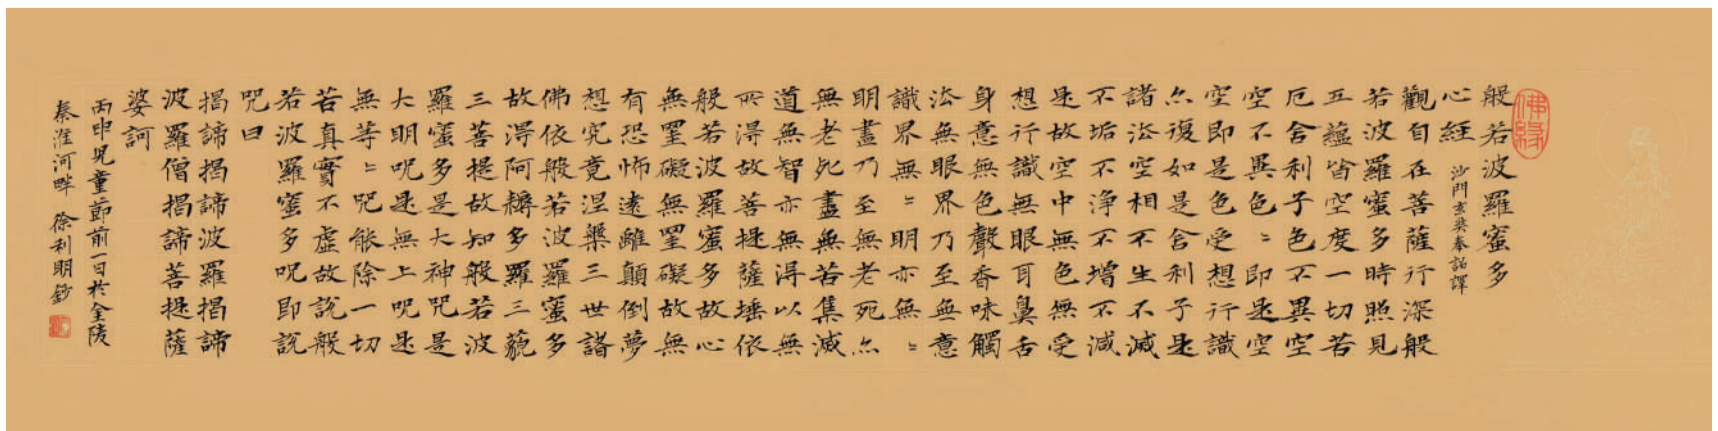 佛緣
般若波羅蜜多
心經 沙門玄奘奉詔譯
觀自在菩薩行深般
若波羅蜜多時照見
五蘊皆空度一切苦
厄舍利子色不異空
空不異色〻即是空
空即是色受想行識
亦復如是舍利子是
諸法空相不生不滅
不垢不淨不增不減
是故空中無色無受
想行識無眼耳鼻舌
身意無色聲香味觸
法無眼界乃至無意
識界無〻明亦無〻
明盡乃至無老死亦
無老死盡無苦集滅
道無智亦無得以無
所得故菩提薩埵依
般若波羅蜜多故心
無罣礙無罣礙故無
有恐怖遠離顛倒夢
想究竟涅槃三世諸
佛依般若波羅蜜多
故得阿耨多羅三藐
三菩提故知般若波
羅蜜多是大神咒是
大明咒是無上咒是
無等〻咒能除一切
苦真實不虛故說般
若波羅蜜多咒即說
咒曰
揭諦揭諦波羅揭諦
波羅僧揭諦菩提薩
婆訶
丙申兒童節前一日於金陵
秦淮河畔 徐利明鈔